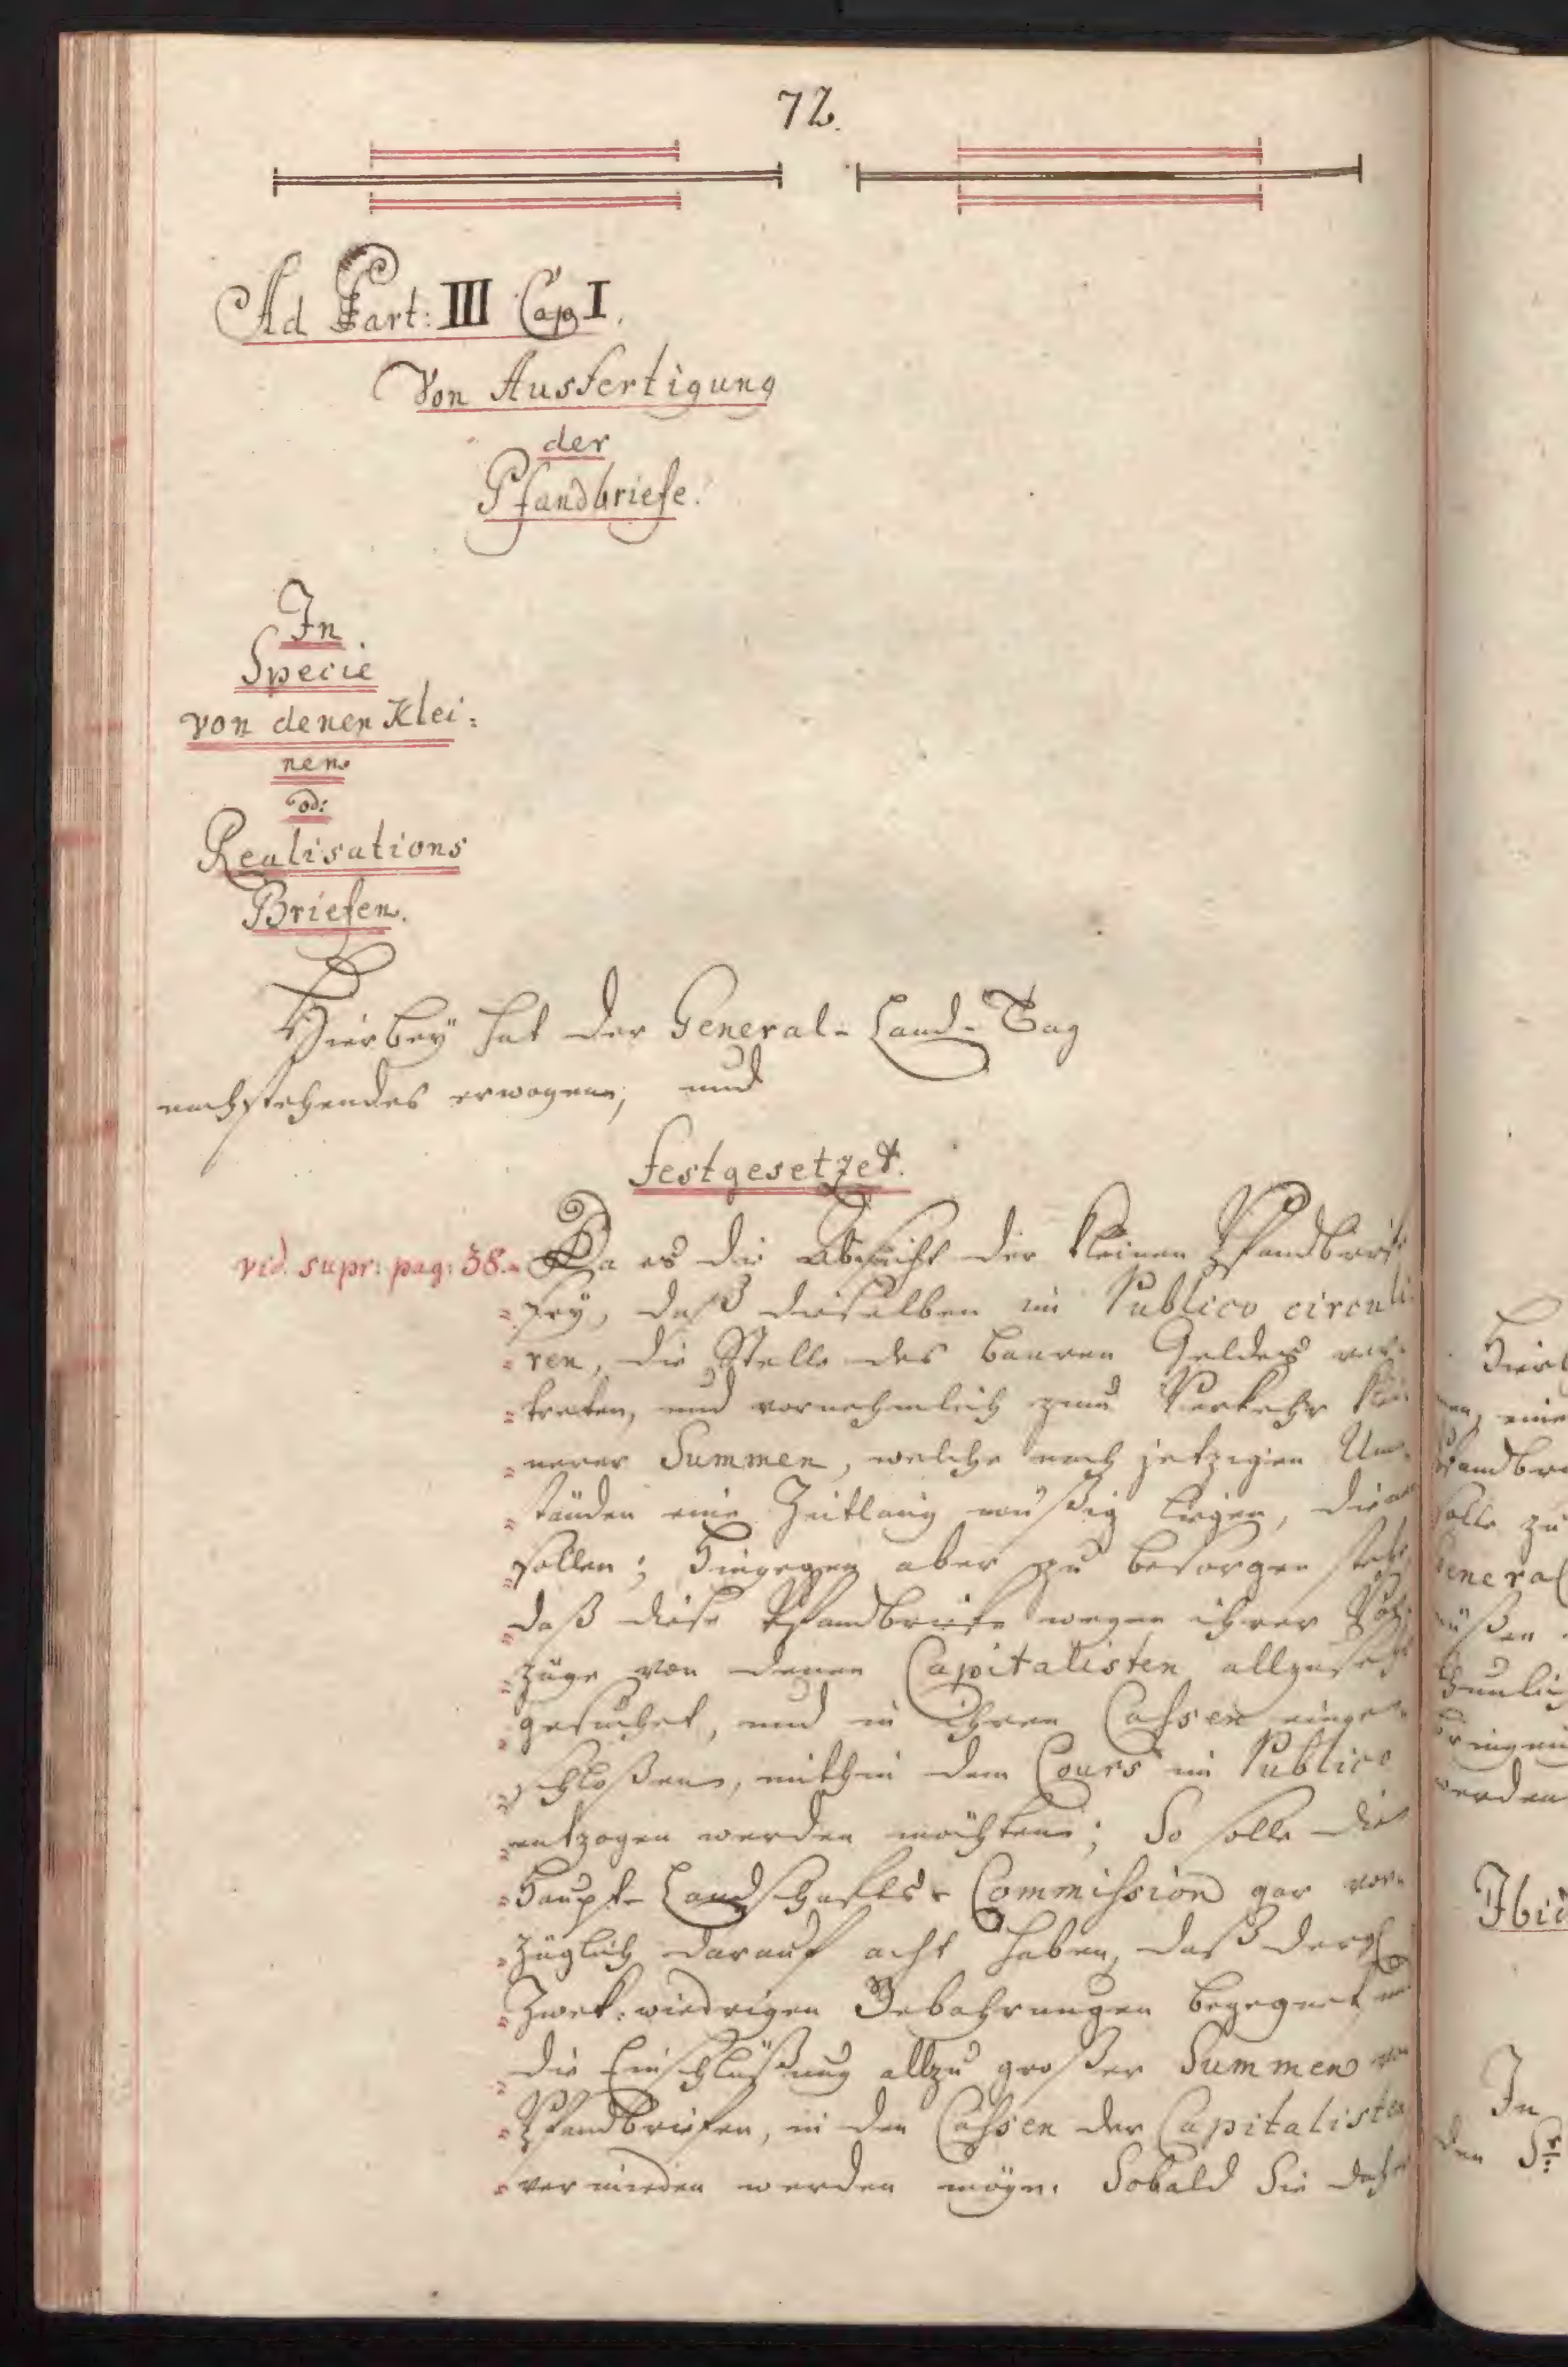 72.
Ad Part: III Cap I.
Von Ausfertigung
der
Pfandbriefe.
In
Specie
von denen Klei:
nen
od:
Realisations
Briefen.
Hierbeÿ hat der General- Land- Tag
nachstehendes erwogen, und
festgesetzet.
vid. supr: pag: 38.
Da es die Absicht der kleinen Pfandbriefe
seÿ, daß dieselben im Publico circuli
ren, die Stelle des baaren Geldes ver-
treten, und vornehmlich zum Verkehr klei
nerer Summen, welche nach jetzigen Um-
ständen eine Zeitlang müßig liegen, dienen
sollen; Hingegen aber zu besorgen steht
daß diese Pfandbriefe wegen ihrer Vor
züge von denen Capitalisten allzusehr
gesuchet, und in ihren Cassen einge-
schloßen, mithin dem Cours im Publico
entzogen werden möchten; So solle die
Haupt- Landschafts- Commission gar vor-
züglich darauf acht haben, daß dergl
Zwek: wiedrigen Gebahrungen begegnet
die Einschlüßung allzu großer Summen von
Pfandbriefen, in den Cassen der Capitalisten
vermieden werden möge. Sobald Sie daher
Hierb
men, eine
Pfandbr
solle zu
General
müßen
thunlich
bringen
werden
Ibid
In
den Sr: